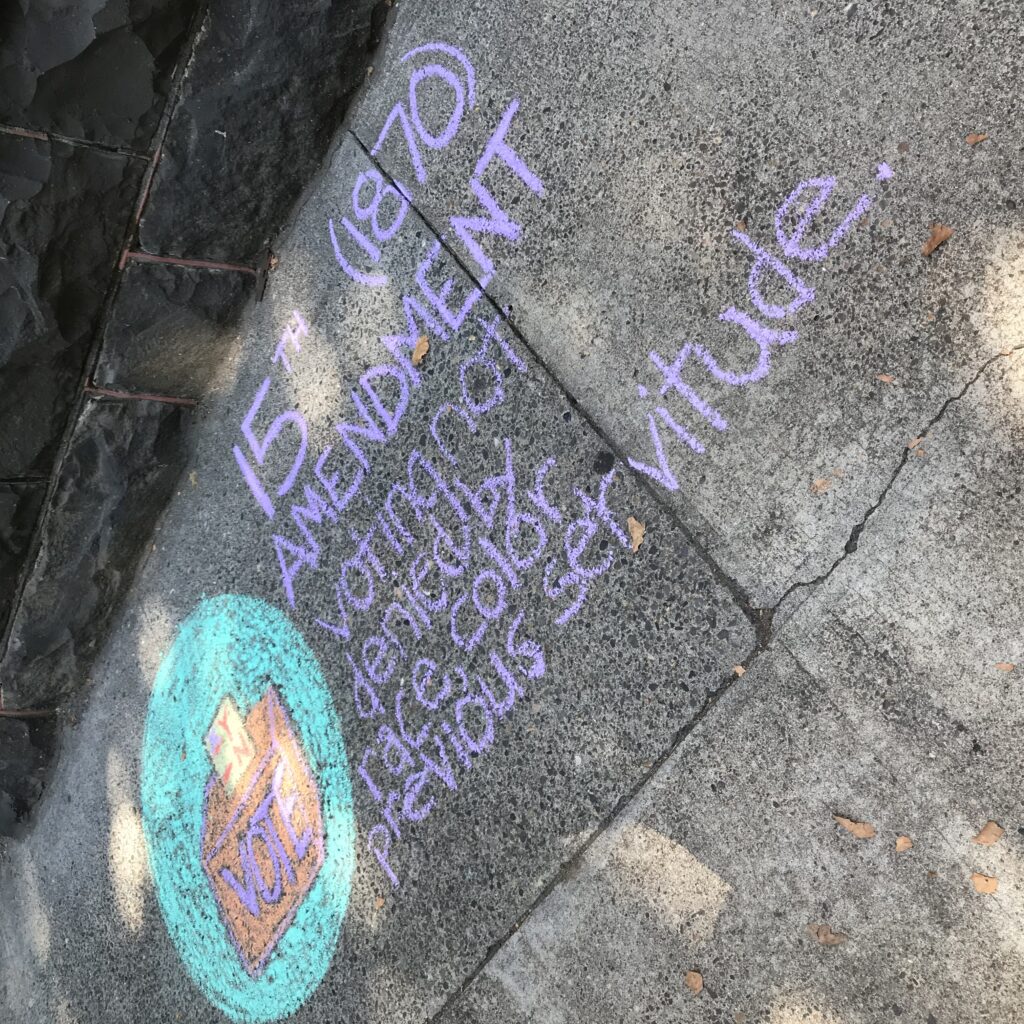 15TH (1870)
AMENDMENT
voting not
denied by
race, color
previous servitude.
VOTE